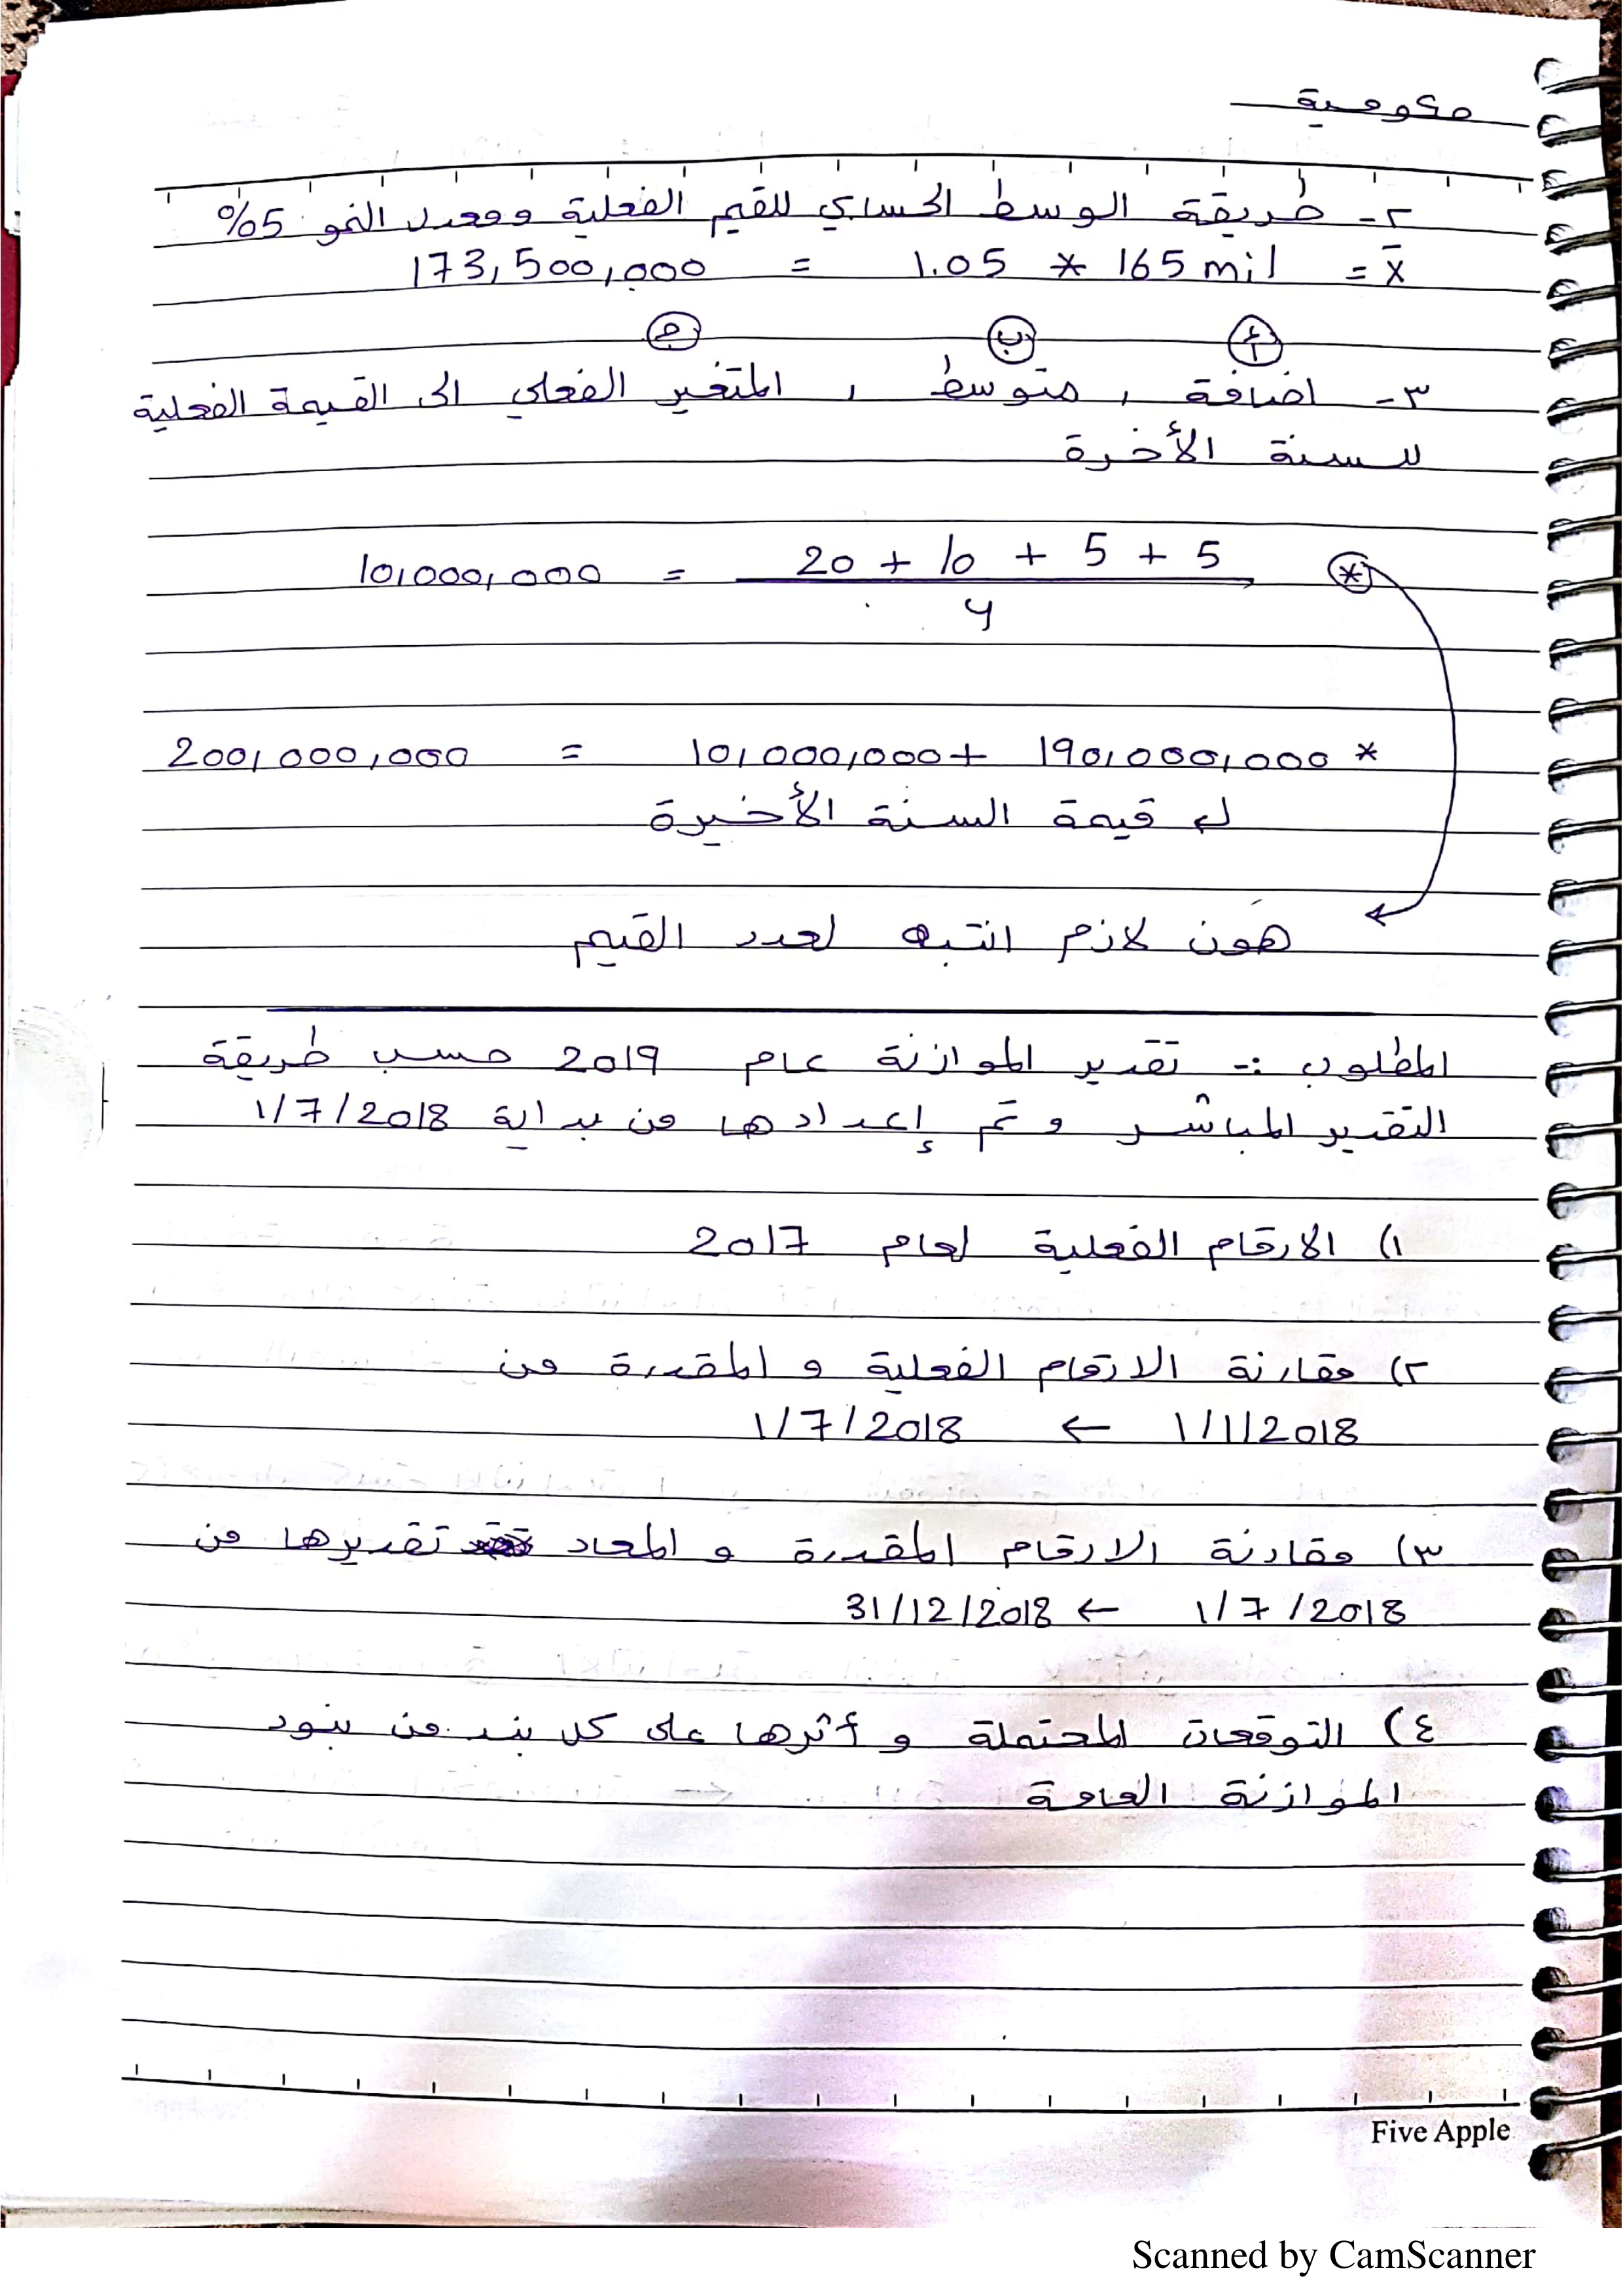 حكومية
٢- طريقة الوسط الحسابي للقيم الفعلية ومعدل النمو 5%
x̄ = 165 mil * 1.05 = 173,500,000
أ ب ج
٣- اضافة ، متوسط ، المتغير الفعلي الى القيمة الفعلية
للسنة الأخرة
* 20 + 10 + 5 + 5 = 10,000,000
4
* 190,000,000 + 10,000,000 = 200,000,000
له قيمة السنة الأخيرة
هون لازم انتبه لعدد القيم
المطلوب :- تقدير الموازنة عام 2019 حسب طريقة
التقدير المباشر و تم إعدادها من بداية 1/7/2018
١) الارقام الفعلية لعام 2017
٢) مقارنة الارقام الفعلية و المقدرة من
1/1/2018 ← 1/7/2018
٣) مقارنة الارقام المقدرة و المعاد تقديرها من
1/7/2018 ← 31/12/2018
٤) التوقعات المحتملة و أثرها على كل بند من بنود
الموازنة العامة
Five Apple
Scanned by CamScanner